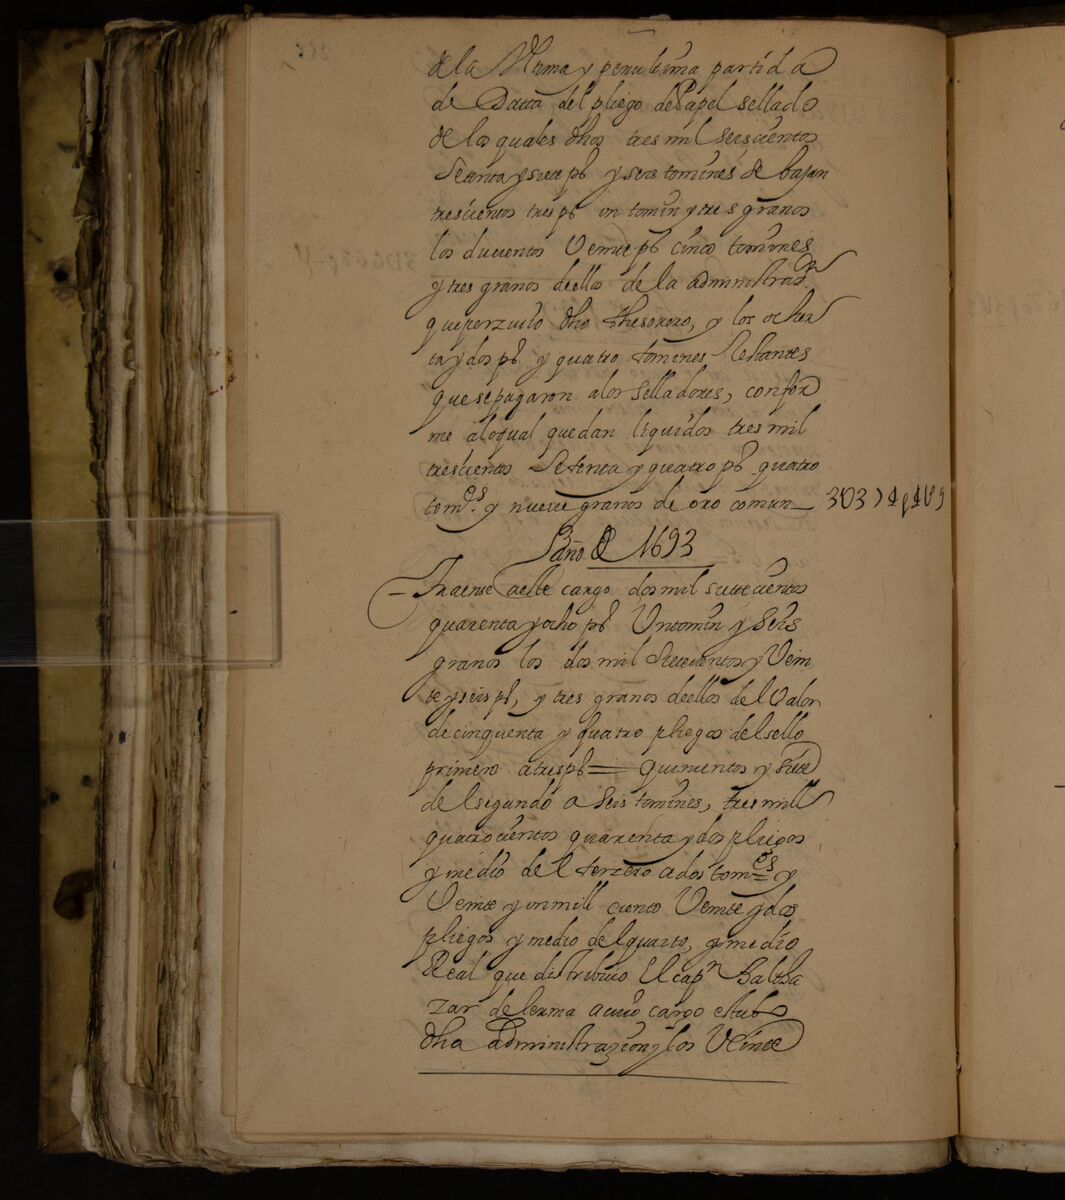 de la Vltima y penultima partida
de Datta del pliego de Papel sellado
de los quales dhos tres mil seiscientos
Setenta y siete ps y seis tomines se bajan
trescientos tres ps vn tomin y tres granos
los ducientos Veinte ps cinco tomines
y tres granos dellos de la administraon
que perzivio dho thesorero, y los ochen
ta y dos ps y quatro tomines Restantes
que se pagaron alos selladores, confor
me alo qual quedan liquidos tres mil
trescientos Setenta y quatro ps quatro
tomes y nueve granos de oro comun
año de 1693
Traense a este cargo dos mil setecientos
quarenta y ocho ps Vn tomin y Seis
granos los dos mil Setecientos y Vein
te y seis ps, y tres granos dellos del Valor
de cinquenta y quatro pliegos del sello
primero a tres ps = quinientos y Siete
del segundo a Seis tomines, tres mill
quatrocientos quarenta y dos pliegos
y medio del terzero a dos tomes y
Veinte y un mill ciento Veinte y dos
pliegos y medio del quarto, a medio
Real que distribuio El capn Baltha
zar de lerma a cuio cargo estubo
dha administrazion y los Veinte